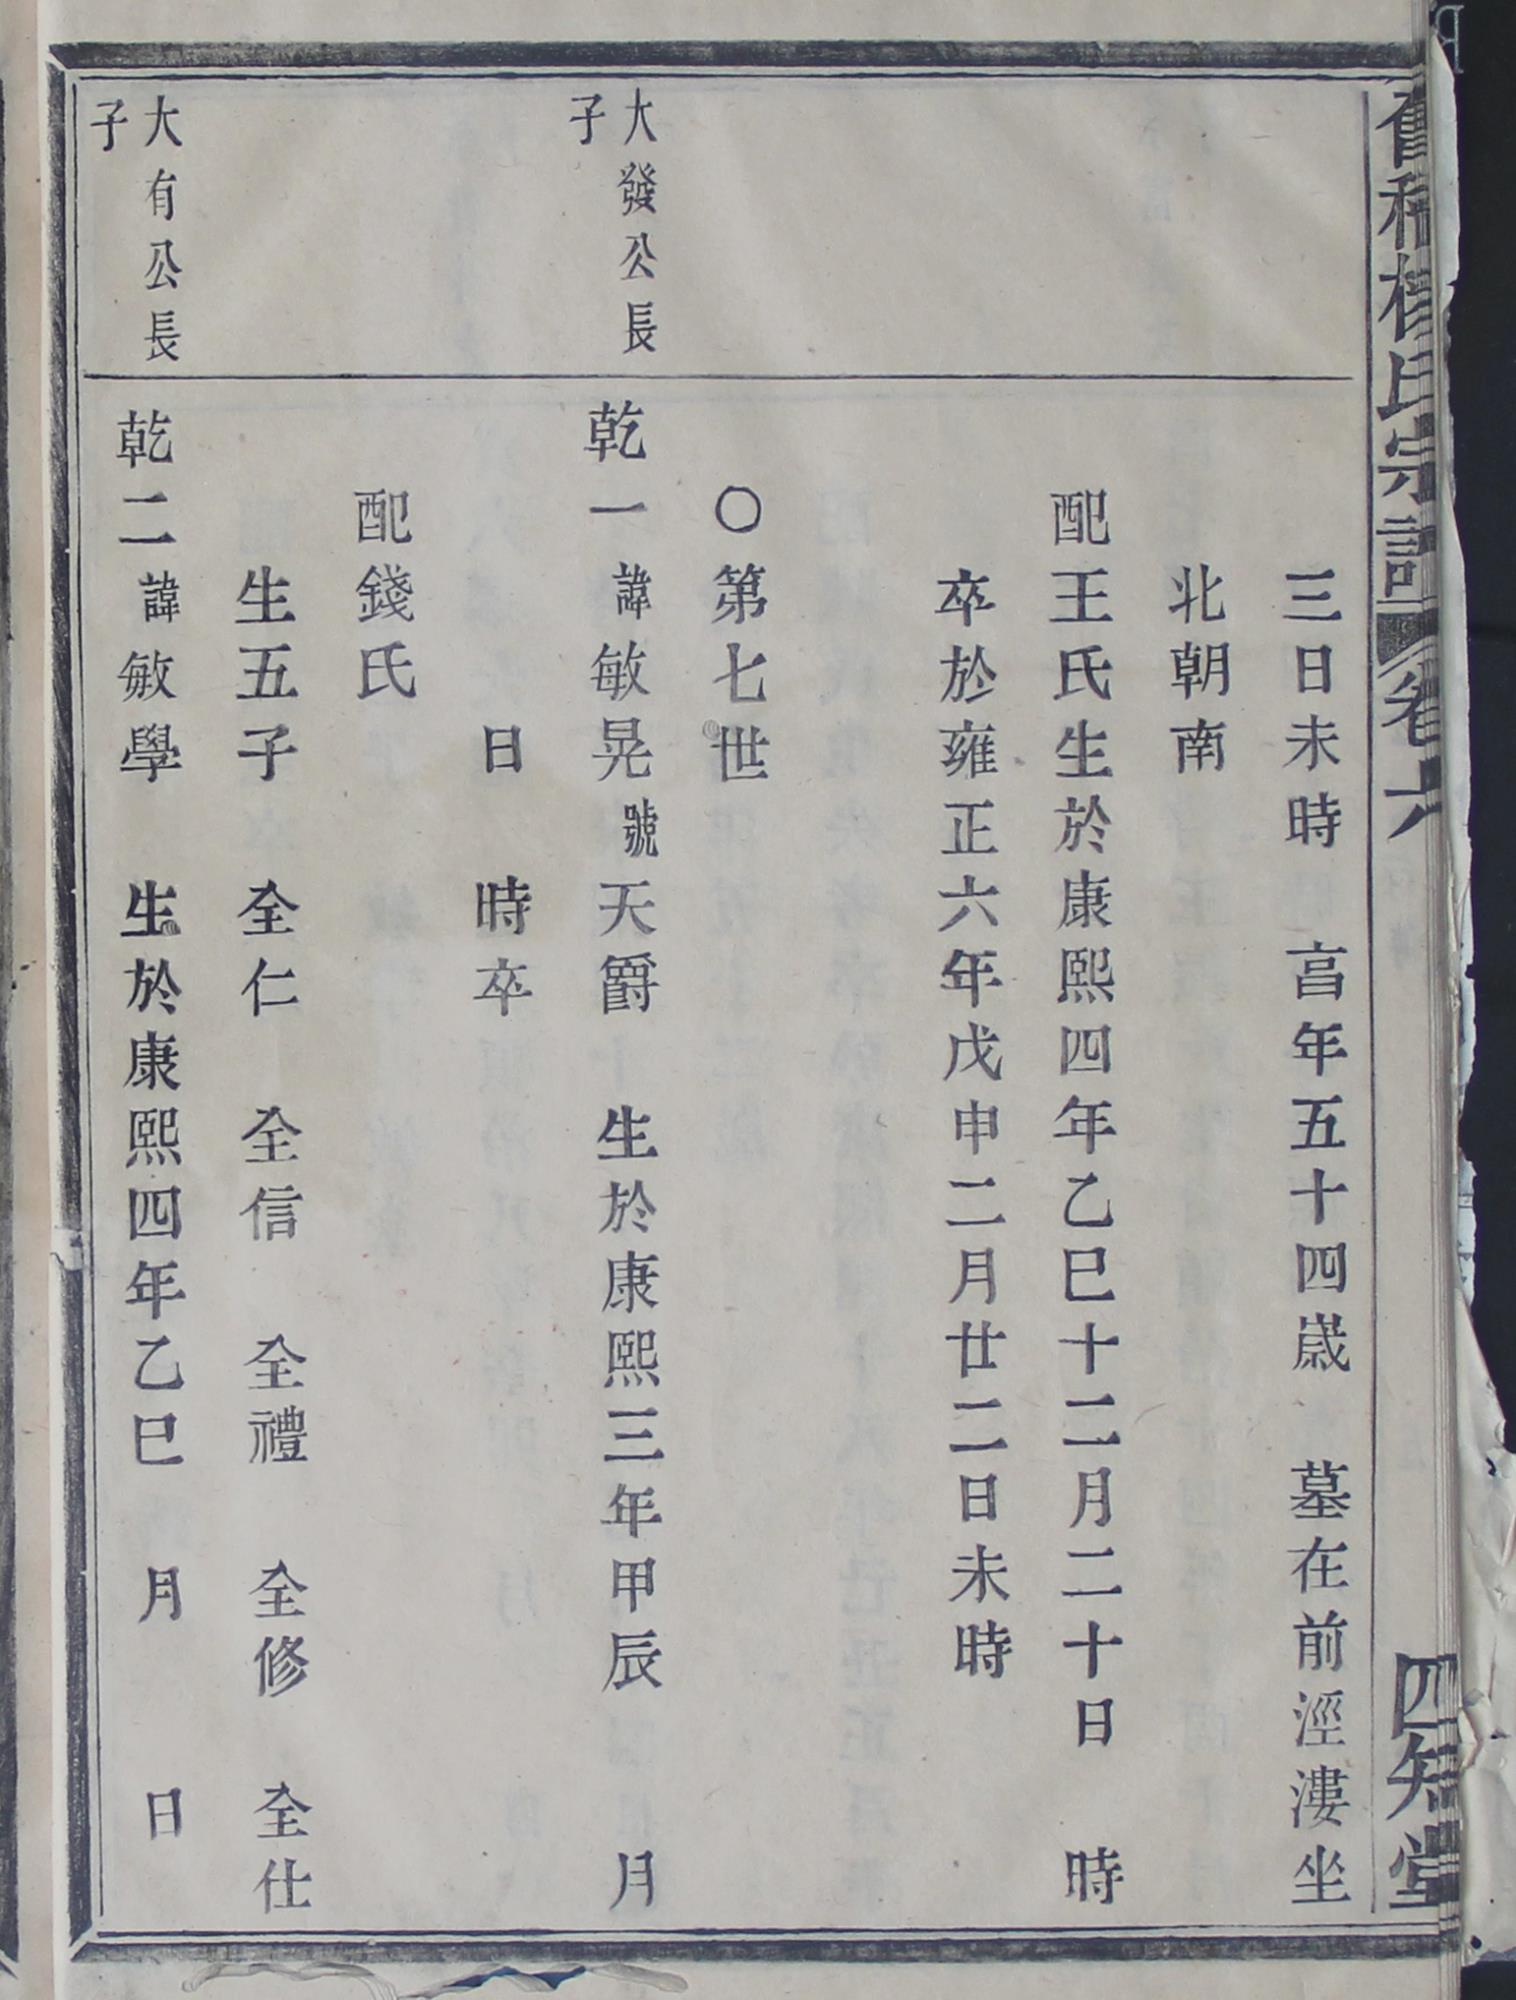 氏宗譜 卷六 四知堂
三日未時 亯年五十四歲 墓在前涇漊坐
北朝南
配王氏生於康熙四年乙巳十二月二十日 時
卒於雍正六年戊申二月廿二日未時
〇第七世
大發公長
子
乾一諱敏晃號天爵 生於康熙三年甲辰 月
日 時卒
配錢氏
生五子 仝仁 仝信 仝禮 仝修 仝仕
大有公長
子
乾二諱敏學 生於康熙四年乙巳 月 日